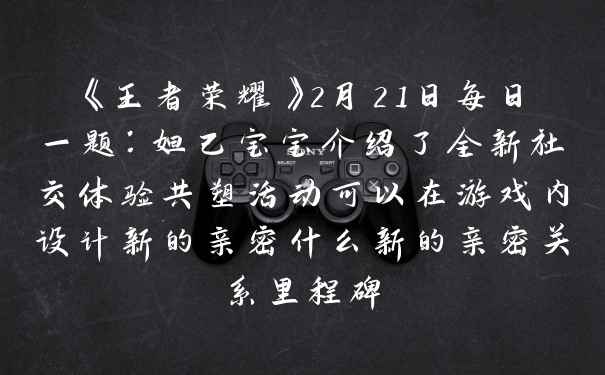 《王者荣耀》2月21日每日
一题：妲己宝宝介绍了全新社
交体验共塑活动可以在游戏内
设计新的亲密什么新的亲密关
系里程碑
SONY
SELECT START